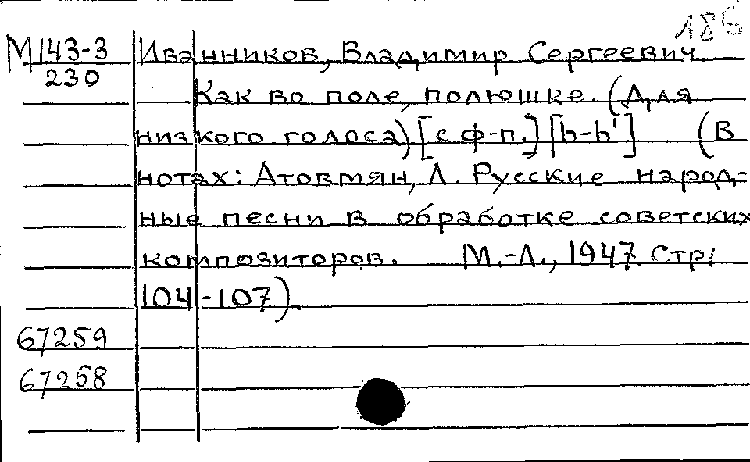 186
М143-3 Иванников, Владимир Сергеевич.
230
Как во поле, полюшке. (Для
низкого голоса) [с ф-п.] [h-h¹] (В
нотах: Атовмян, Л. Русские народ-
ные песни в обработке советских
композиторов. М.-Л., 1947. Стр:
104-107).
67259
67258